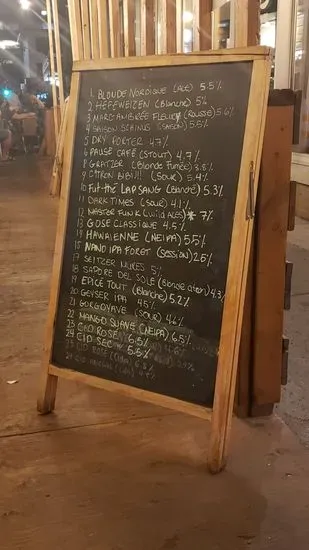 1 BLONDE NORDIQUE (ALE) 5.5%
2 HEFEWEIZEN (Blanche) 5%
3 MARC AMBRÉE FLEURY (ROUSSE) 5.6%
4 SAISON SCHINUS (SAISON) 5.5%
5 DRY PORTER 4.7%
6 PAUSE CAFÉ (STOUT) 4.7%
8 GRATZER (Blonde Fumée) 3.8%
9 CITRON (SOUR) 5.4%
10 Fut-thé LAPSANG (Blanche) 5.3%
11 DARK TIMES (SOUR) 4.1%
12 MASTER FUNK (WILD ALES)* 7%
13 GOSE CLASSIQUE 4.5%
14 HAWAIENNE (NEIPA) 5.5%
15 NANO IPA FORET (SESSION) 2.5%
17 SEITZER 5%
18 SAPORE DEL SOLE (Blonde) 4.3%
19 ÉPICE TOUT (Blanche) 5.2%
20 GEYSER IPA 4.5%
21 GORGOYAVE (SOUR) 4.6%
22 MANGO SUAVE (NEIPA) 6.5%
23 CID ROSÉ 6.5%
24 CID SEC 5.5%